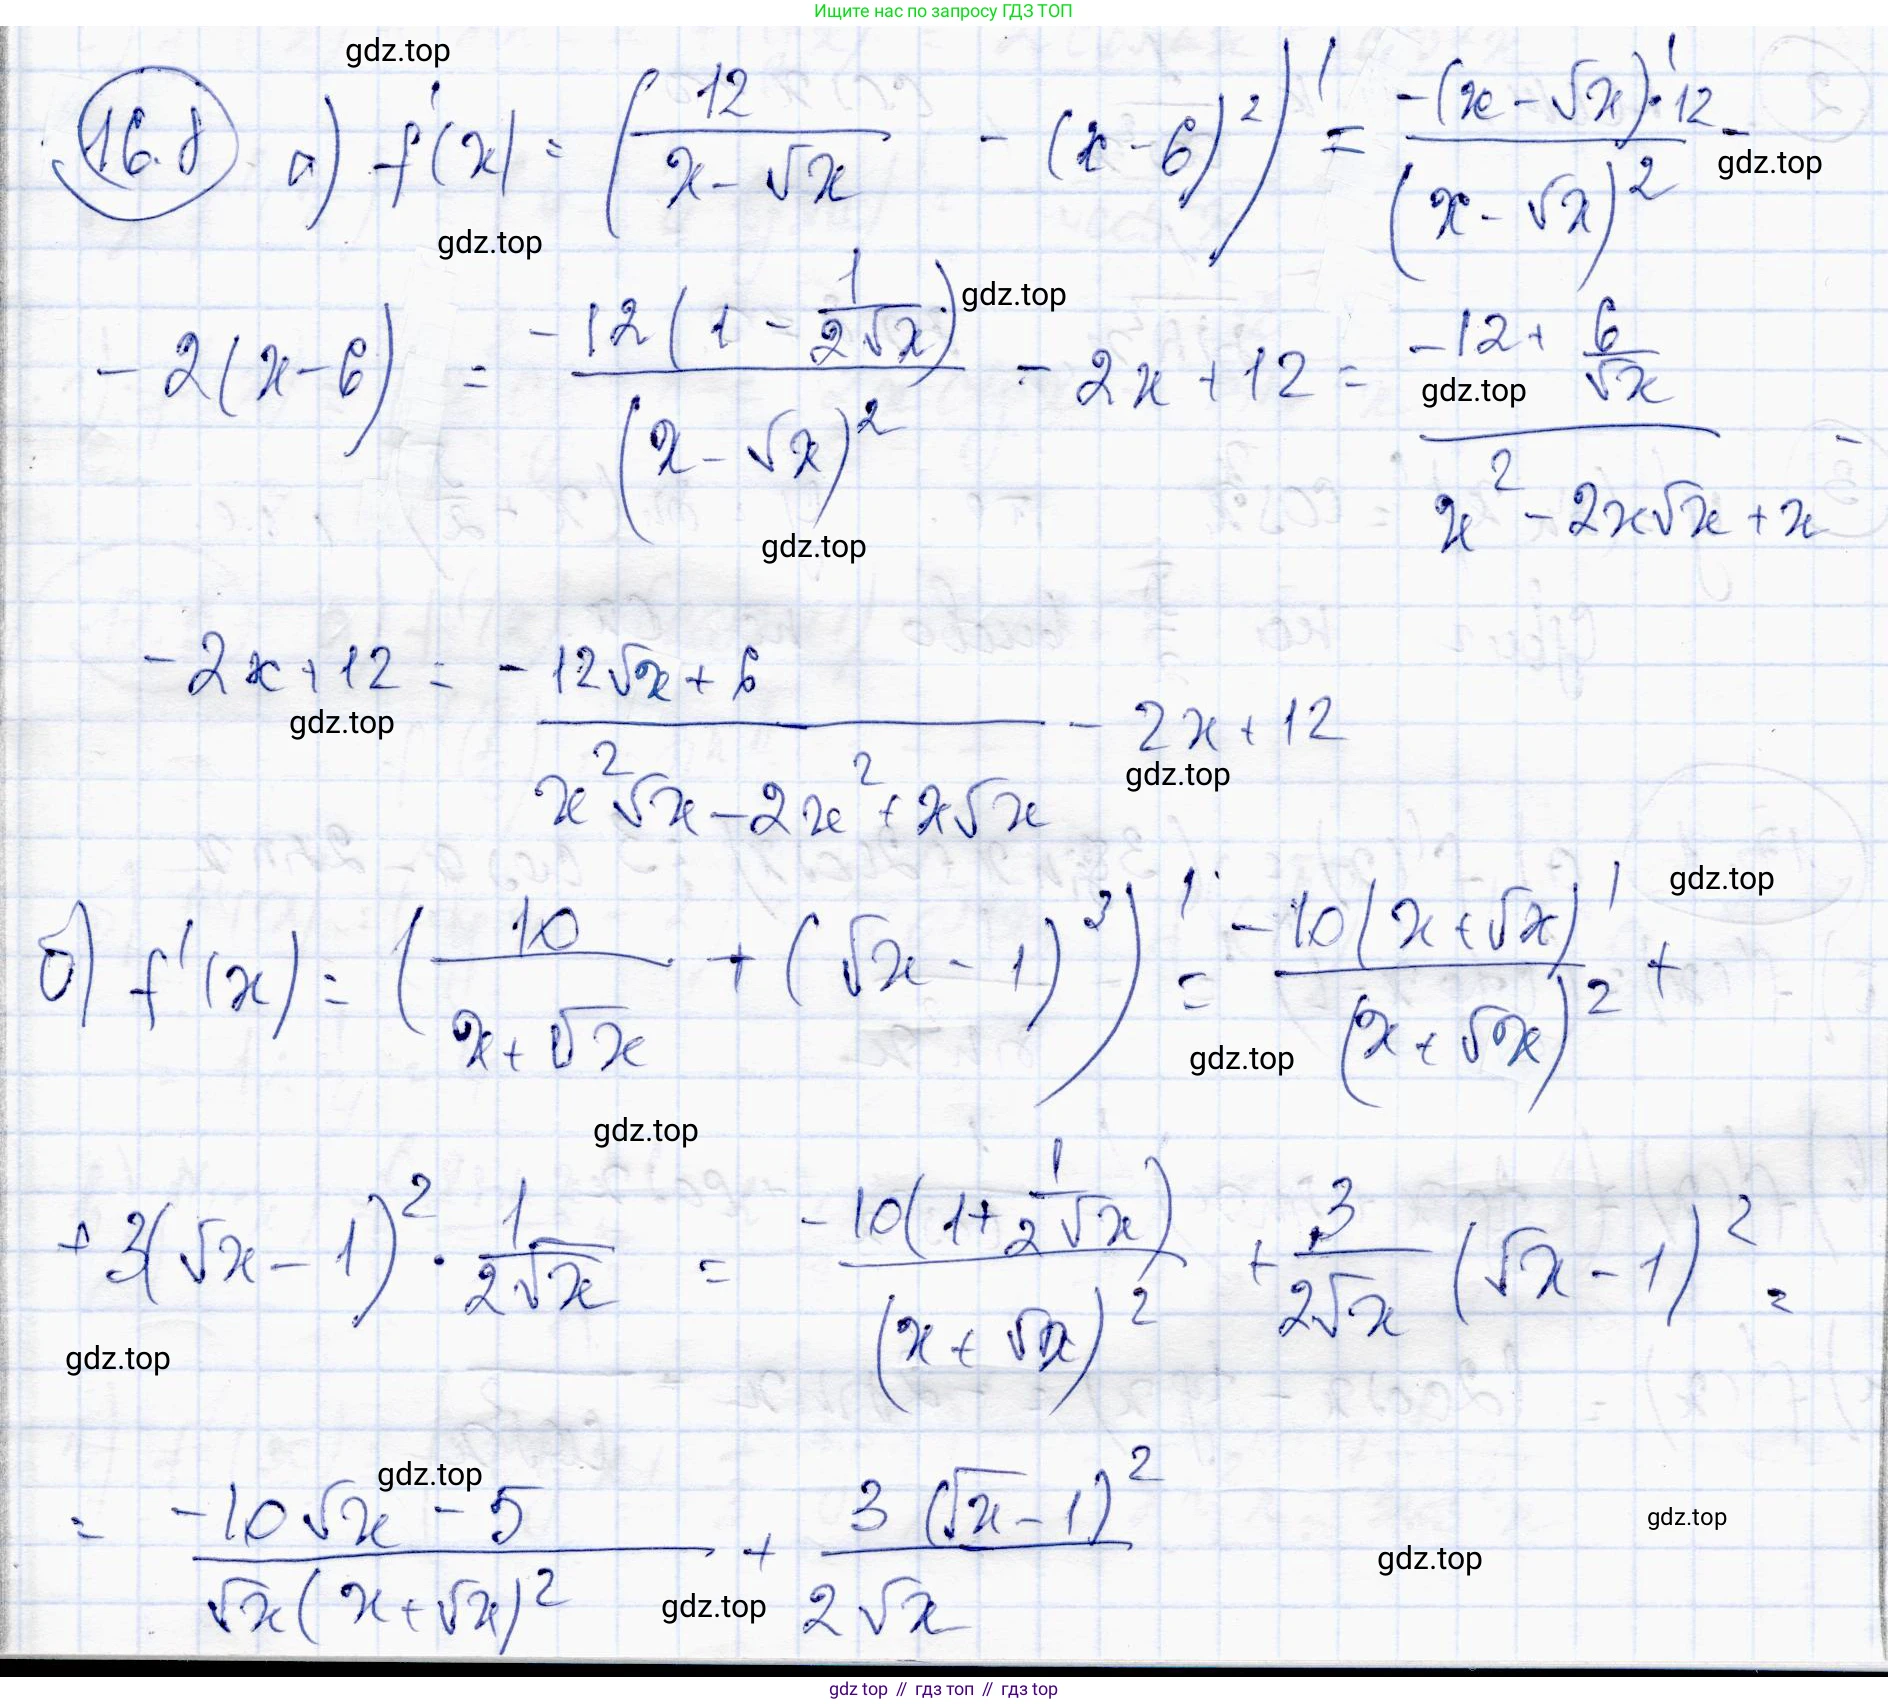 Ищите нас по запросу ГДЗ ТОП
gdz.top
16.8 а) f'(x) = (12/(x - √x) - (x - 6)²)' = (-(x - √x)'·12)/(x - √x)² -
gdz.top gdz.top
- 2(x - 6) = (-12(1 - 1/(2√x)))/(x - √x)² - 2x + 12 = (-12 + 6/√x)/(x² - 2x√x + x) -
gdz.top gdz.top gdz.top
- 2x + 12 = (-12√x + 6)/(x²√x - 2x² + x√x) - 2x + 12
gdz.top gdz.top
gdz.top
б) f'(x) = (10/(x + √x) + (√x - 1)³)' = (-10(x + √x)')/(x + √x)² +
gdz.top
gdz.top
+ 3(√x - 1)² · 1/(2√x) = (-10(1 + 1/(2√x)))/(x + √x)² + 3/(2√x) (√x - 1)² =
gdz.top
gdz.top gdz.top
= (-10√x - 5)/(√x(x + √x)²) + (3(√x - 1)²)/(2√x)
gdz.top gdz.top
gdz.top // гдз топ // гдз top